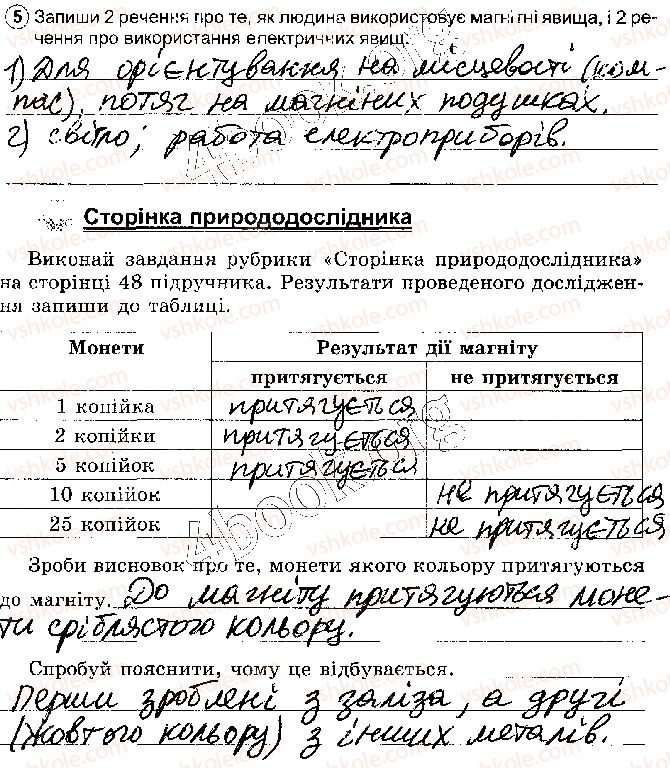 5 Запиши 2 речення про те, як людина використовує магнітні явища, і 2 ре-
чення про використання електричних явищ.
1) Для орієнтування на місцевості (ком-
пас), потяг на магніних подушках.
2) світло; работа електроприборів.
Сторінка природодослідника
Виконай завдання рубрики «Сторінка природодослідника»
на сторінці 48 підручника. Результати проведеного досліджен-
ня запиши до таблиці.
Монети Результат дії магніту
притягується не притягується
1 копійка притягується
2 копійки притягується
5 копійок притягується
10 копійок не притягується
25 копійок не притягується
Зроби висновок про те, монети якого кольору притягуються
до магніту. До магніту притягуються моне-
ти сріблястого кольору.
Спробуй пояснити, чому це відбувається.
Перши зроблені з заліза, а другі
(жовтого кольору) з інших металів.
4book.org
4book.org
vshkole.com